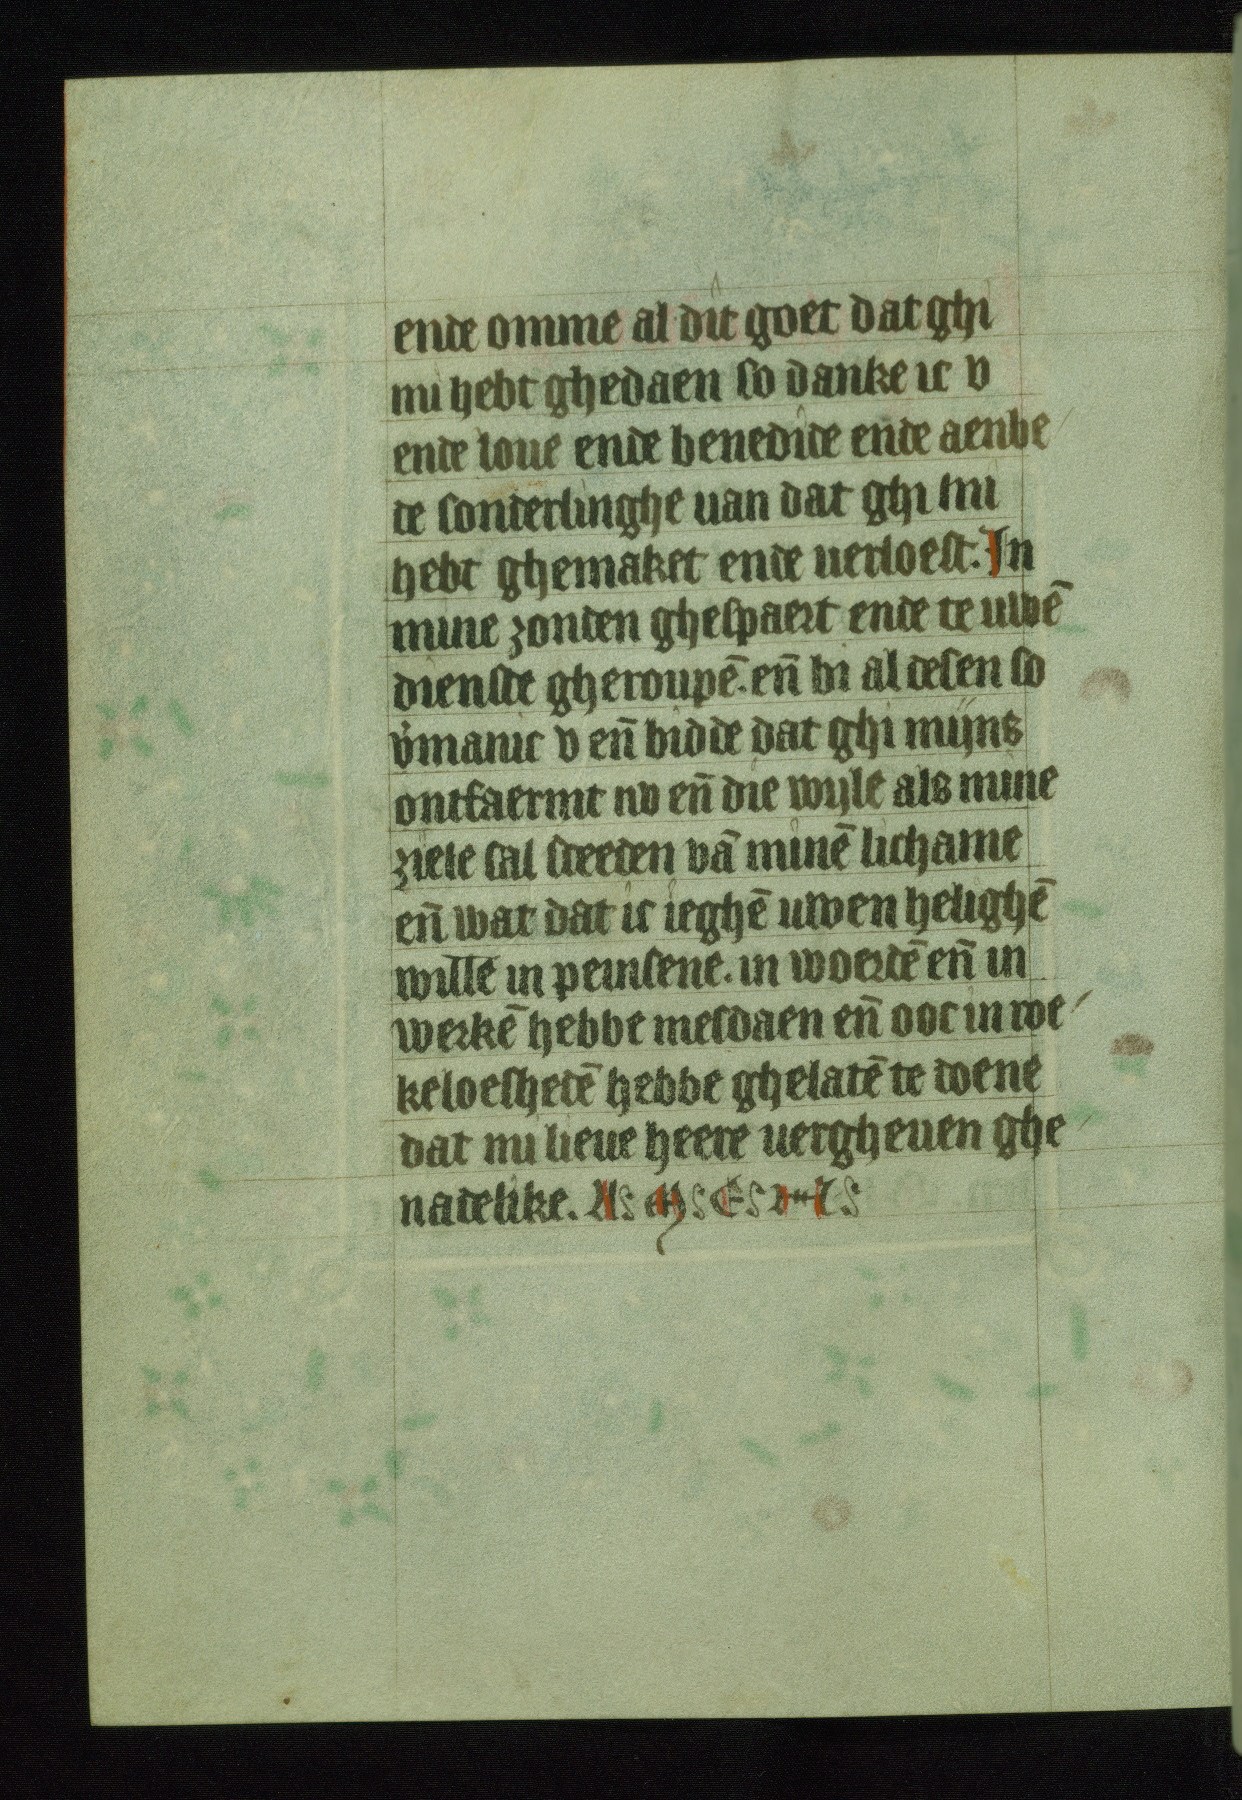 ende omme al dit goet dat ghi
mi hebt ghedaen so danke ic v
ende loue ende benedide ende aenbe
de sonderlinghe uan dat ghi mi
hebt ghemaket ende uerloest. In
mine zonden ghespaert ende te uwē
dienste gheroupē. eñ bi al desen so
v̓manic v eñ bidde dat ghi mijns
ontfaermt nv eñ die wyle als mine
ziele sal sceeden vā minē lichame
eñ wat dat ic ieghē uwen helighē
wille in peinsene. in woerdē eñ in
werkē hebbe mesdaen eñ ooc in roe
keloeshedē hebbe ghelatē te doene
dat mi lieue heere uergheuen ghe
nadelike.